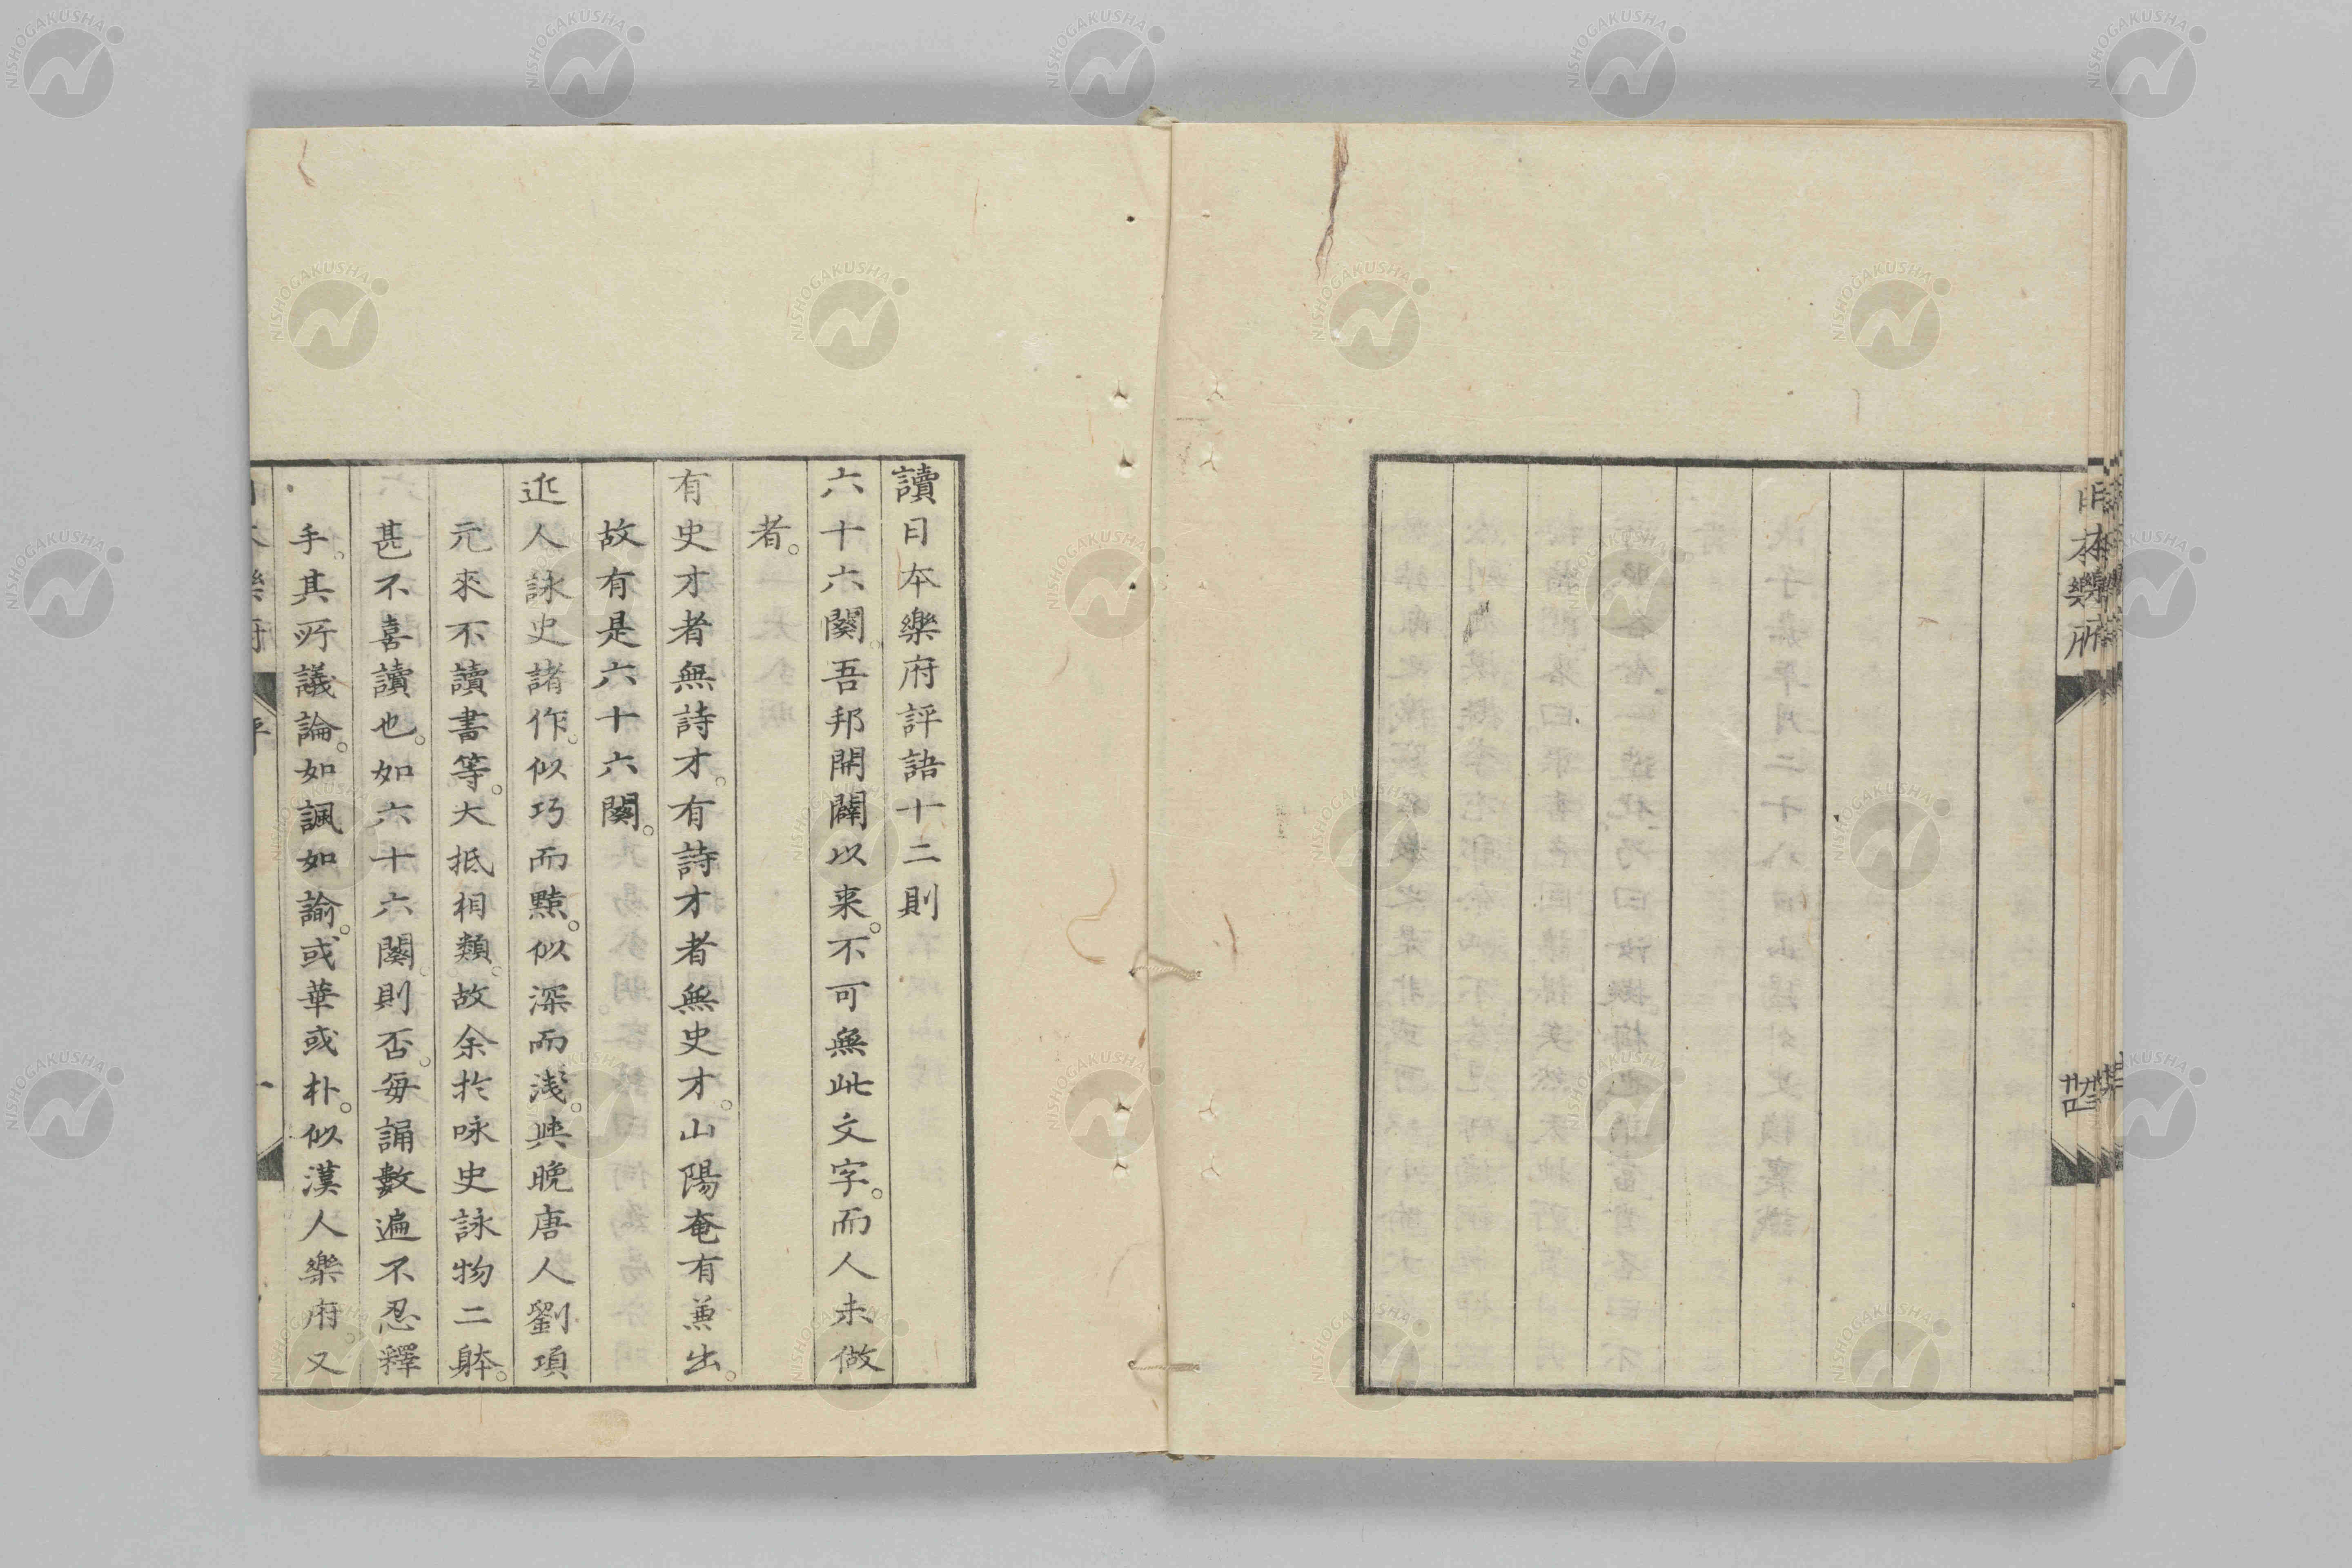 讀日本樂府評語十二則
六十六闋。吾邦開闢以來。不可無此文字。而人未做
者。
有史才者無詩才。有詩才者無史才。山陽奄有兼出。
故有是六十六闋。
近人詠史諸作。似巧而黠。似深而淺。與晚唐人劉項
元來不讀書等。大抵相類。故余於咏史詠物二躰。
甚不喜讀也。如六十六闋。則否。每誦數遍不忍釋
手。其所議論。如諷如諭。或華或朴。似漢人樂府。又
日本樂府
評
一
日本樂府
NISHOGAKUSHA